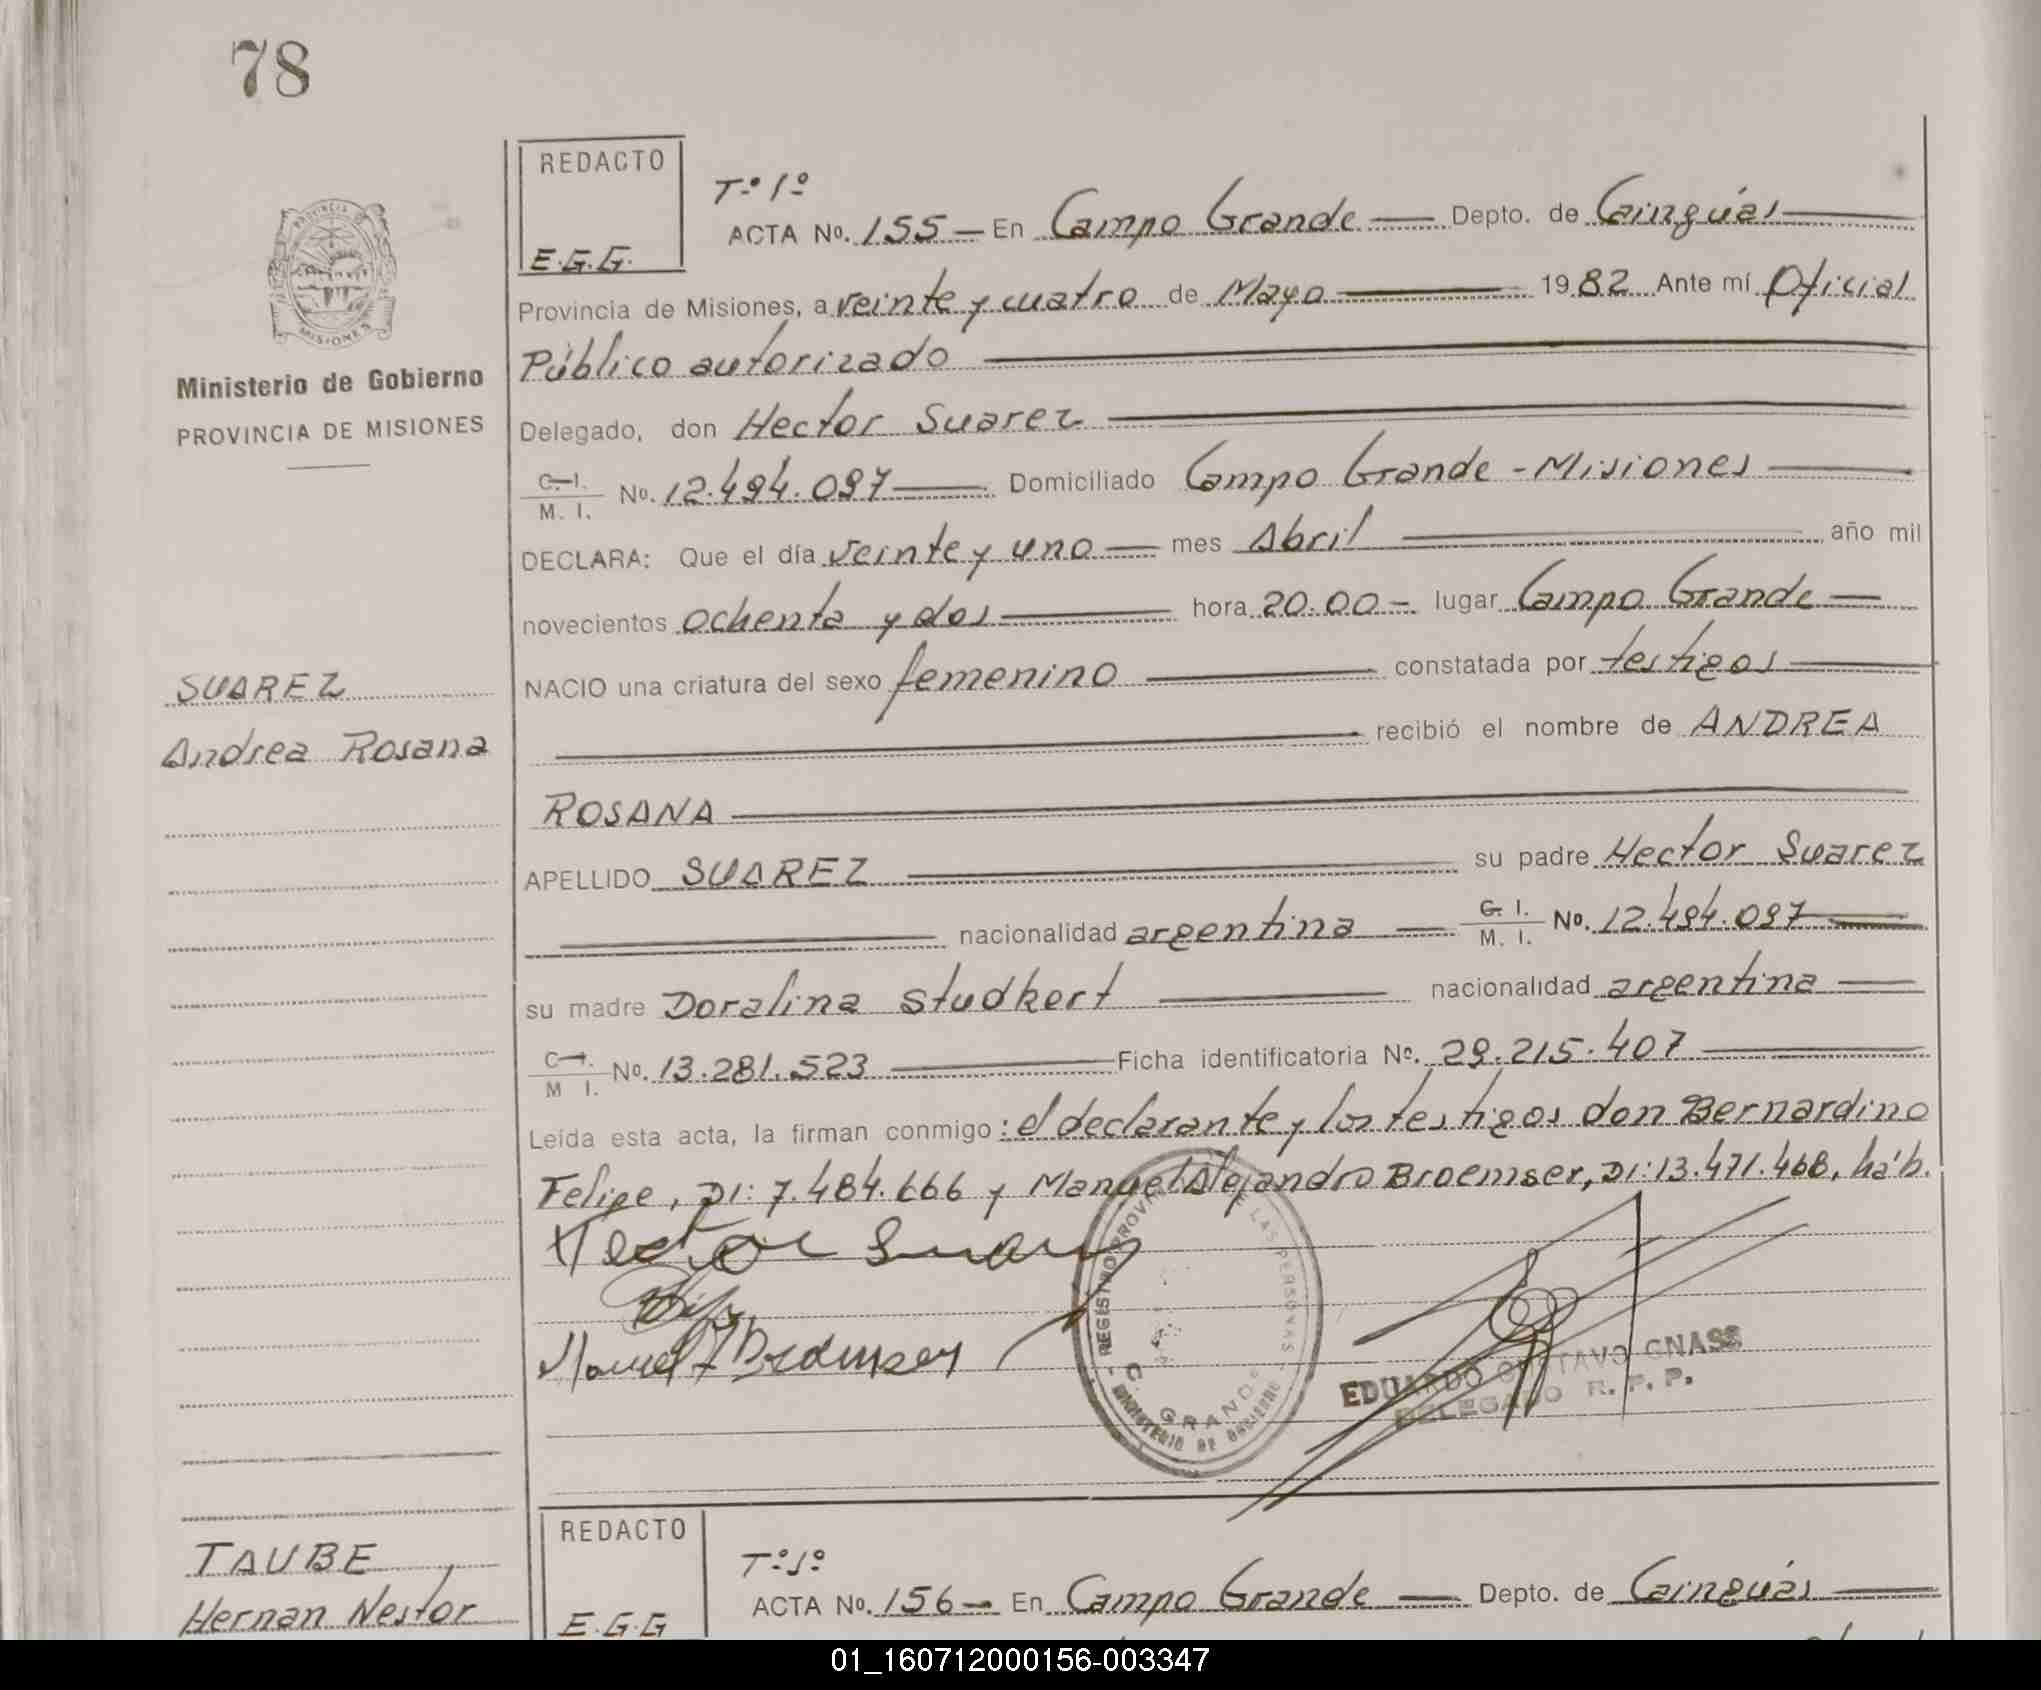 78
REDACTO
E.G.G.
PROVINCIA DE
MISIONES
Ministerio de Gobierno
PROVINCIA DE MISIONES
Tº 1º
ACTA Nº. 155 — En Campo Grande — Depto. de Cainguás —
Provincia de Misiones, a veinte y cuatro de Mayo — 1982 Ante mí Oficial
Público autorizado —
Delegado, don Hector Suarez —
C. I. / M. I. Nº. 12.494.097 — Domiciliado Campo Grande - Misiones —
DECLARA: Que el día veinte y uno — mes Abril — año mil
novecientos ochenta y dos — hora 20.00 - lugar Campo Grande —
SUAREZ
Andrea Rosana
NACIO una criatura del sexo femenino — constatada por testigos —
— recibió el nombre de ANDREA
ROSANA —
APELLIDO SUAREZ — su padre Hector Suarez
— nacionalidad argentina — C. I. / M. I. Nº. 12.494.097 —
su madre Doralina Studkert — nacionalidad argentina —
C. I. / M I. Nº. 13.281.523 — Ficha identificatoria Nº. 29.215.407 —
Leída esta acta, la firman conmigo: el declarante y los testigos don Bernardino
Felipe, DI: 7.484.666 y Manuel Alejandro Broemser, DI: 13.471.468, háb.
Hector Suarez
Manuel A Broemser
REGISTRO PROV DE LAS PERSONAS
C. GRANDE
MINISTERIO DE GOBIERNO
EDUARDO GUSTAVO GNASS
DELEGADO R. P. P.
TAUBE
Hernan Nestor
REDACTO
E.G.G
Tº 1º
ACTA Nº. 156 — En Campo Grande — Depto. de Cainguás —
01_160712000156-003347